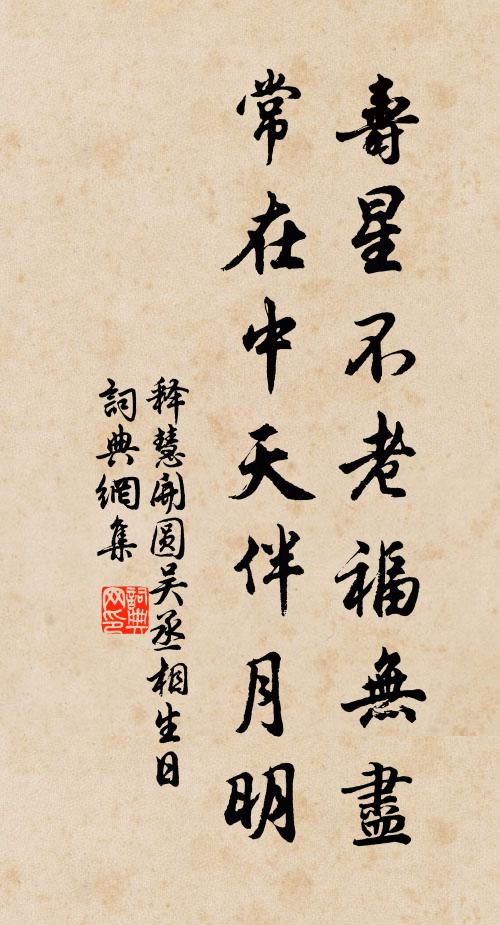 壽星不老福無盡
常在中天伴月明
释慧開圆吴丞相生日
詞典網集
詞典網印